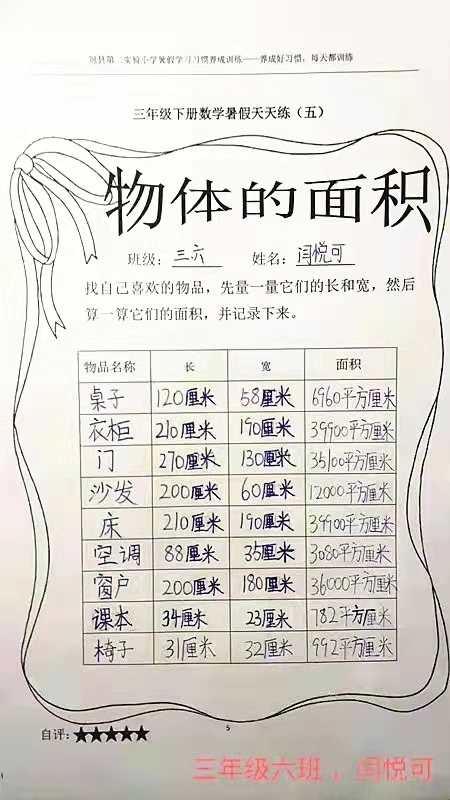 冠县第二实验小学暑假学习习惯养成训练——养成好习惯，每天都训练
三年级下册数学暑假天天练（五）
物体的面积
班级：三六 姓名：闫悦可
找自己喜欢的物品，先量一量它们的长和宽，然后
算一算它们的面积，并记录下来。
物品名称 长 宽 面积
桌子 120厘米 58厘米 6960平方厘米
衣柜 210厘米 190厘米 39900平方厘米
门 270厘米 130厘米 35100平方厘米
沙发 200厘米 60厘米 12000平方厘米
床 210厘米 190厘米 39900平方厘米
空调 88厘米 35厘米 3080平方厘米
窗户 200厘米 180厘米 36000平方厘米
课本 34厘米 23厘米 782平方厘米
椅子 31厘米 32厘米 992平方厘米
5
自评：★★★★★
三年级六班，闫悦可